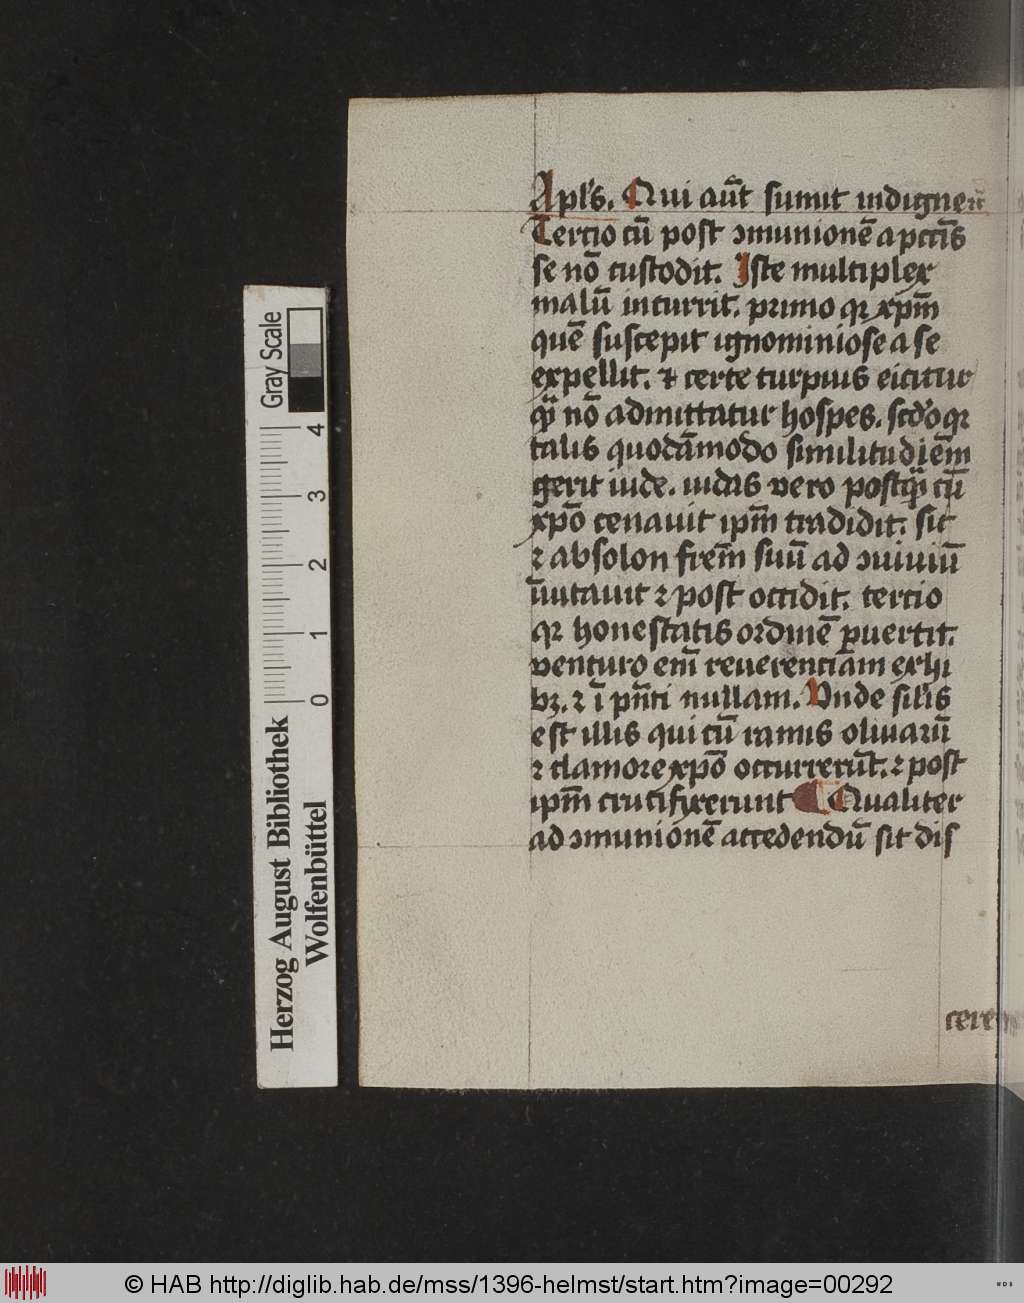 Apl's. Qui aūt sumit indigne ⁊c̄
Tercio cū post ↄmunionē a pctīs
se nō custodit. Iste multiplex
malū incurrit. primo qꝛ xp̄m
quē suscepit ignominiose a se
expellit. ⁊ certe turpius eicitur
qᷓ nō admittatur hospes. scd'o qꝛ
talis quodāmodo similitudiēm
gerit iude. iudas vero postqᷓ cū
xp̄o cenauit ip̄m tradidit. sic
⁊ absolon frēm suū ad ↄuiuiū
īuitauit ⁊ post occidit. tercio
qꝛ honestatis ordinē ꝑuertit.
venturo em̄ reuerenciam exhi
bꝫ. ⁊ ī pn̄ti nullam. Vnde silis
est illis qui cū ramis oliuarū
⁊ clamore xp̄o occurrerūt. ⁊ post
ip̄m crucifixerunt Qualiter
ad ↄmunionē accedendū sit dis
cere
Herzog August Bibliothek
Wolfenbüttel
0 1 2 3 4
Gray Scale
© HAB http://diglib.hab.de/mss/1396-helmst/start.htm?image=00292